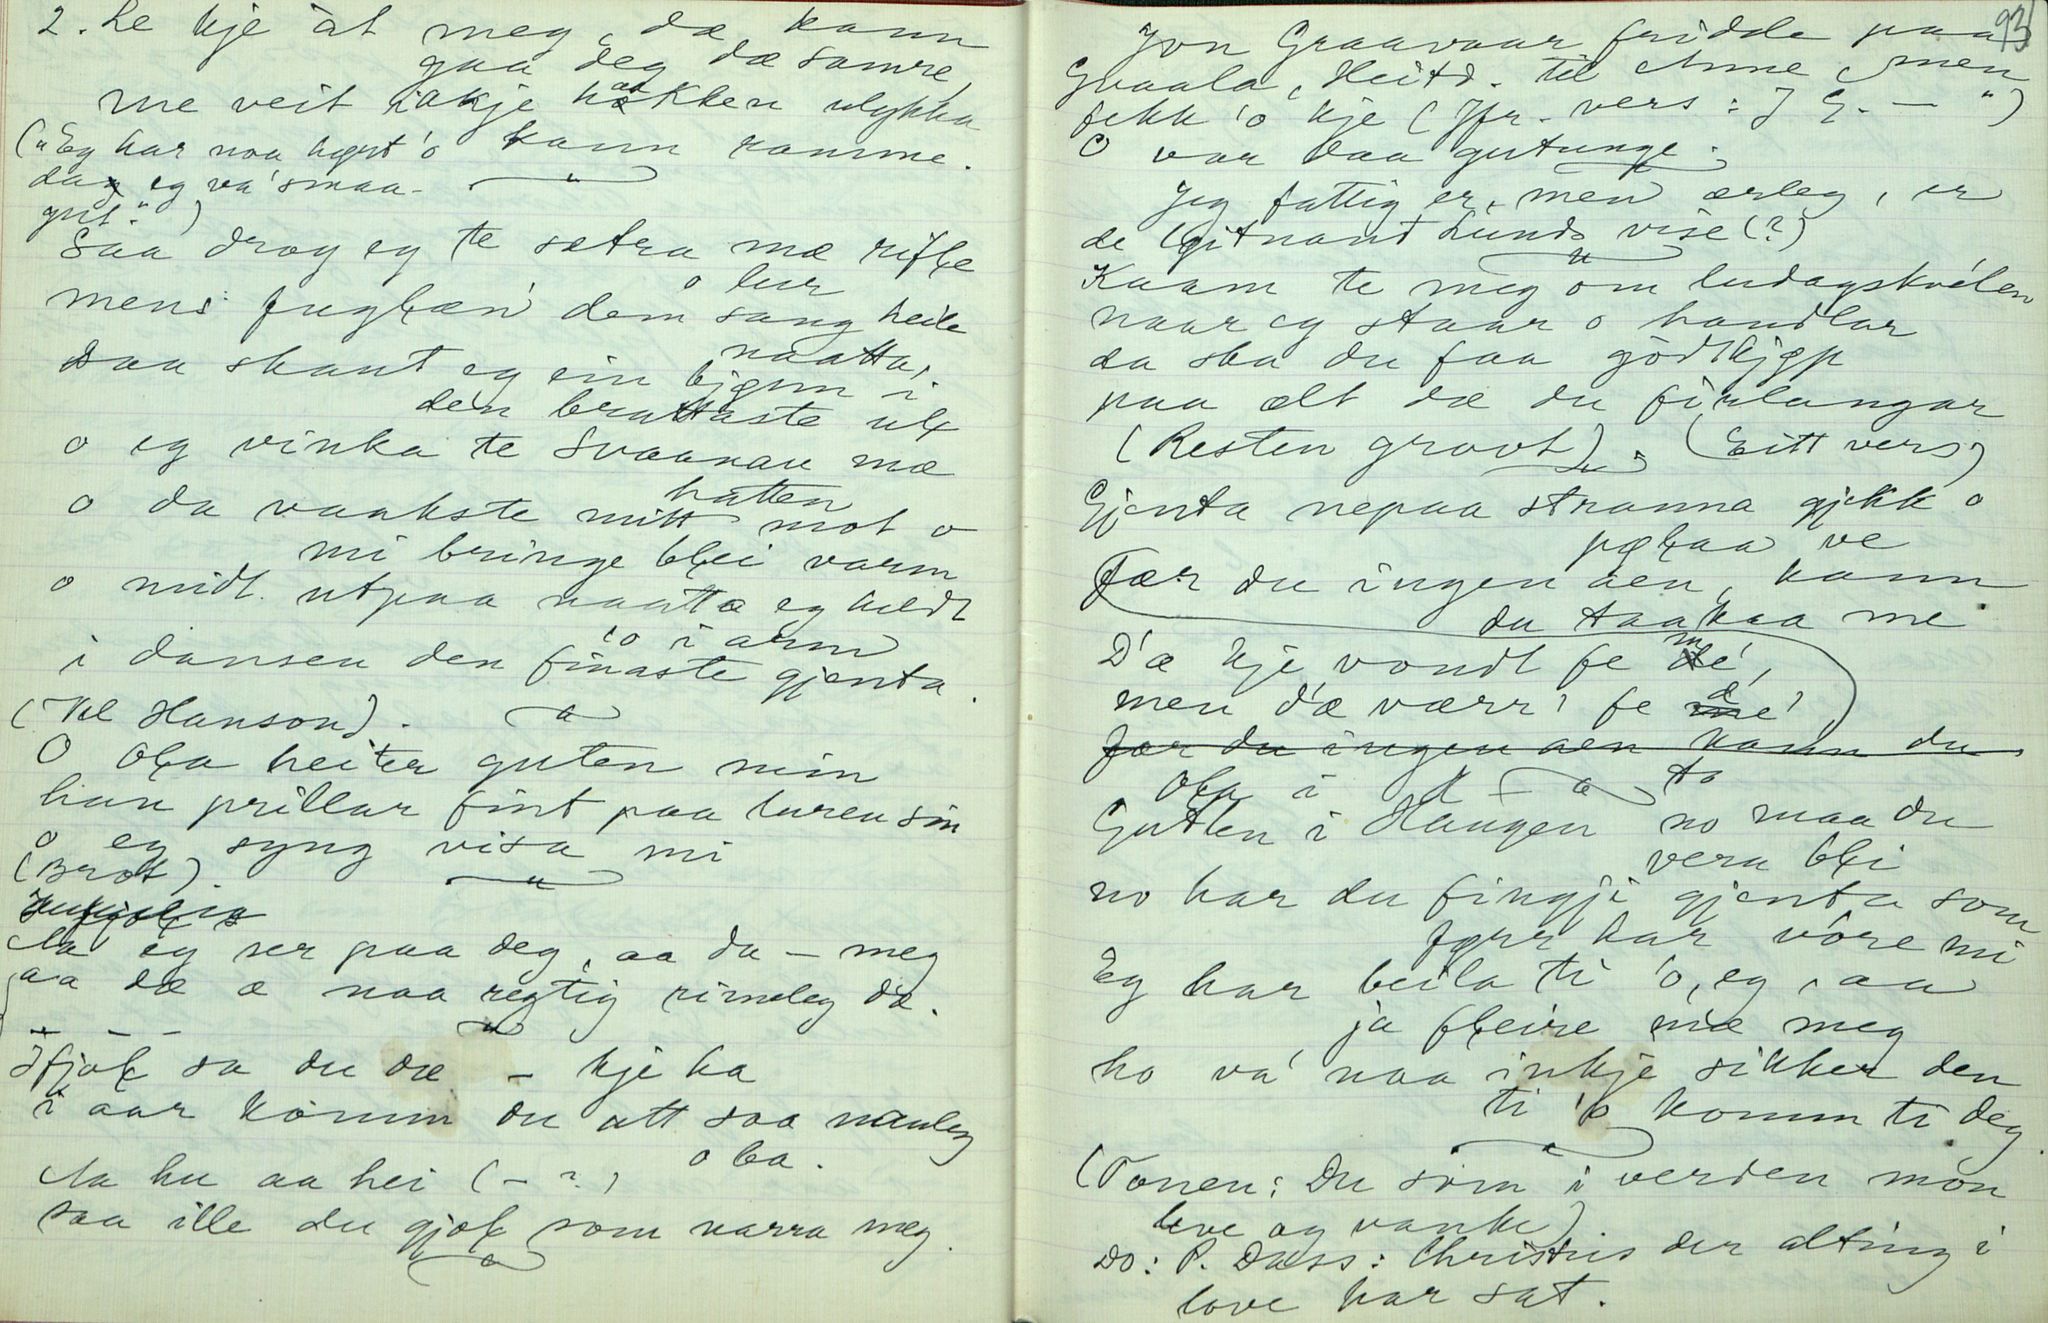 2. Le kje åt meg, dæ kann
gaa deg dæ samre,
me veit ikkje håkken ulykka
kann ramme.
("Eg har noa høyrt 'o
da eg va' smaa-
gut.")
Saa drog eg te sætra mæ rifle
o lur
mens fuglæn' dem sang heile
naatta,
Daa skaut eg ein bjønn i
den brattaste ul
o eg vinka te Svaanau mæ
hatten
o da vaakste mitt mot o
mi bringe blei varm
o midt utpaa naatta eg heldt
'o i arm
i dansen den finaste gjenta.
(Kl Hanson).
O Ola heiter guten min
han prillar fint paa luren sin
o eg syng visa mi
(Brot).
Aa eg ser paa deg, aa du – meg
aa dæ æ naa regtig rimeleg dæ.
– – –
Ifjol sa du dæ – kje ha
i aar komm du att saa nauleg
o ba.
Aa hu aa hei ( – ? )
saa ille du gjol som narra meg.
93
Jon Graavaar fridde paa
Graala, Heitd. til Anne, men
fekk 'o kje (Jfr. vers: J G. — ")
O var daa gutunge.
Jeg fattig er, men ærleg, er
de løitnant Lunds vise (?)
Kaam te meg om ludagskvélen
naar eg staar o handlar
da ska du faa godtkjøp
paa alt dæ du firlangar
(Resten groovt). (Eitt vers)
Gjenta nepaa stranna gjekk o
pølaa ve
Fær du ingen aen, kann
du taakaa me
D'æ kje vondt fe mé,
men d'æ værr' fe dé
Fær du ingen aen kann du
ta
Ola i H –
Guten i Haugen no maa du
vera bli
no har du fingji gjenta som
førr har vore mi
Eg har beila ti 'o, eg, aa
ja fleire mæ meg
ho va' naa inkje sikker den
ti 'o komm ti deg.
(Tonen: Du som i verden mon
leve og vanke)
Do: P. Dass: Christus der alting i
love har sat.